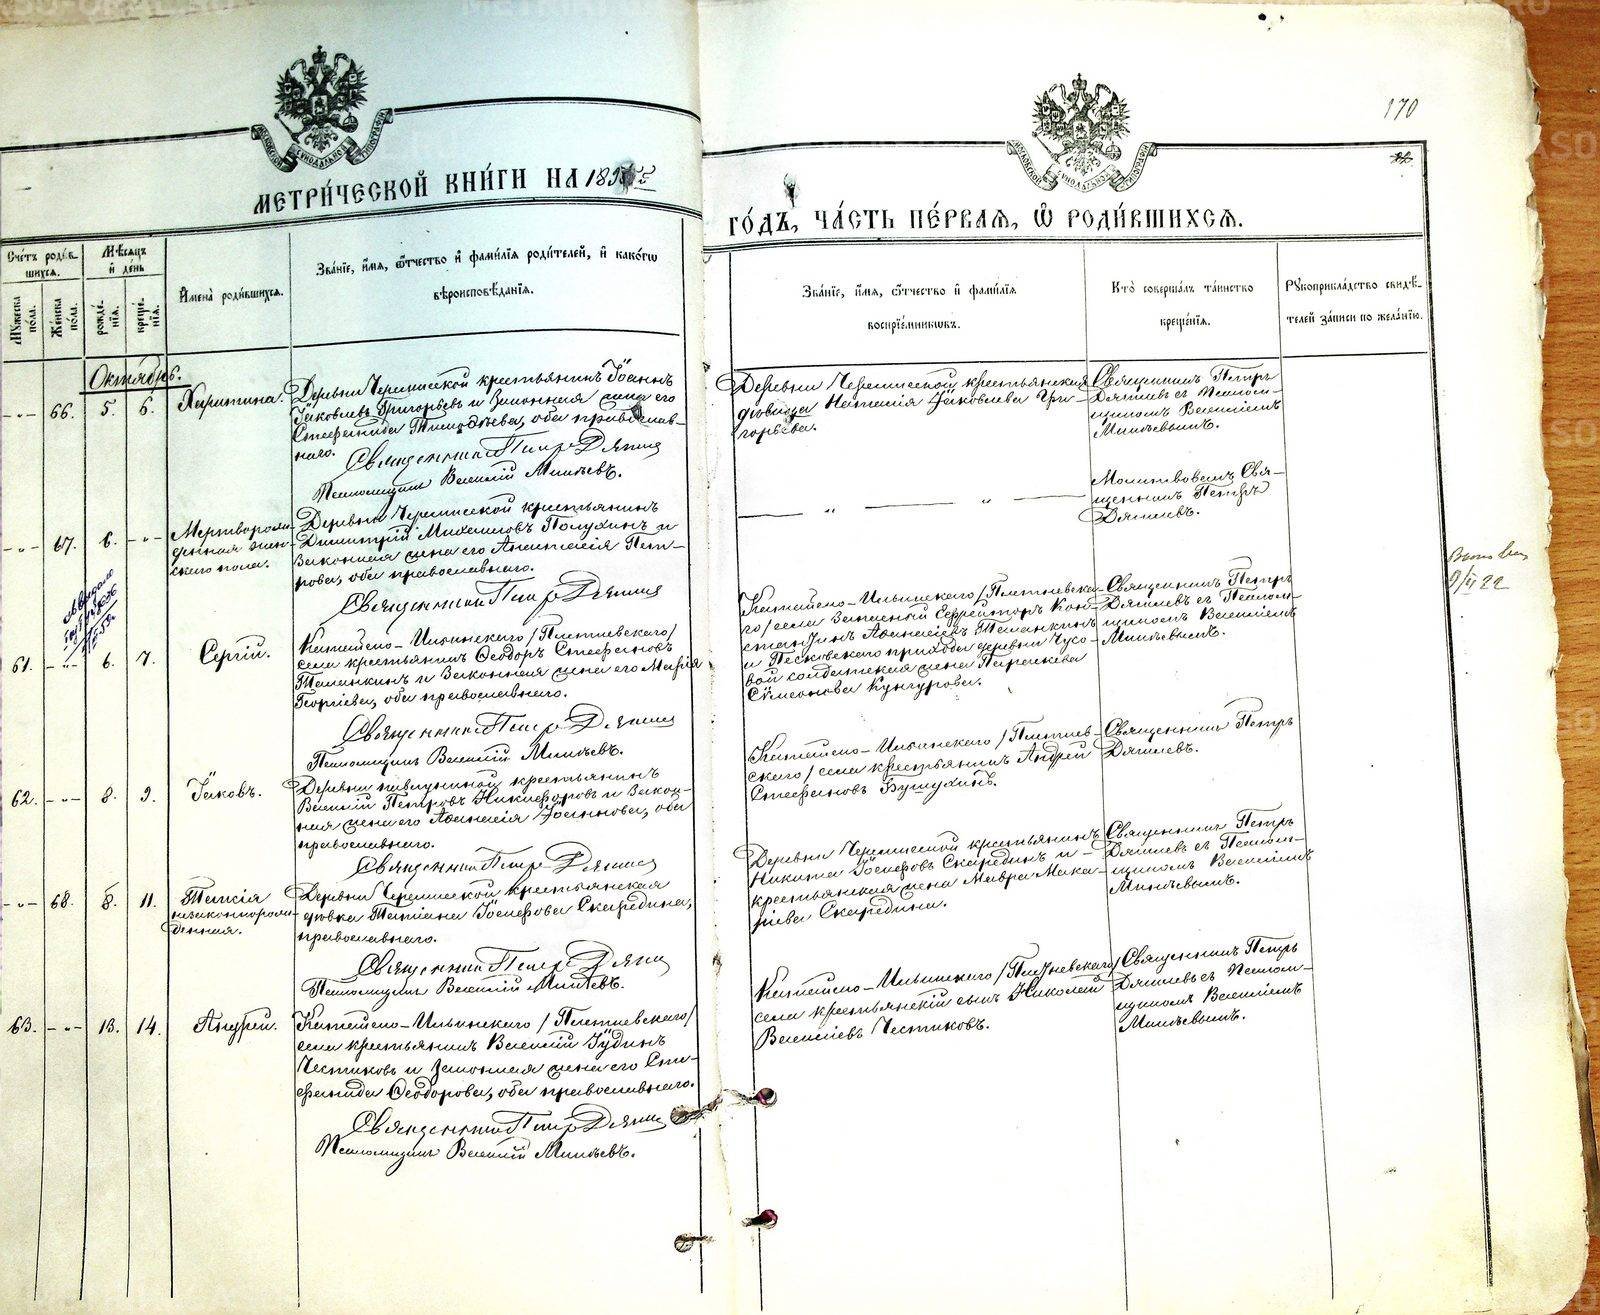 170
МОСКОВСКОЙ СѴНОДАЛЬНОЙ ТИПОГРАФІИ
МЕТРИ́ЧЕСКОЙ КНИ́ГИ НА 189
МОСКОВСКОЙ СѴНОДАЛЬНОЙ ТИПОГРАФІИ
ГО́ДЪ, ЧА́СТЬ ПЕ́РВАЯ, Ѡ҆ РОДИ́ВШИХСЯ.
Сче́тъ роди́в-
шихся.
Мѣ́сяцъ
и҆ де́нь
Мꙋ́жеска по́ла.
Же́нска по́ла.
рожде́-
нія.
креще́-
нія.
И҆мена̀ роди́вшихся.
Зва́ніе, и҆́мя, ѻ҆́тчество и҆ фами́лія роди́телей, и҆ како́гѡ
вѣроисповѣ́данія.
Зва́ніе, и҆́мя, ѻ҆́тчество и҆ фами́лія
воспріе́мникѡвъ.
Кто̀ соверша́лъ та́инство
креще́нія.
Рꙋкоприкла́дство свидѣ́-
телей за́писи по жела́нію.
Октябрь.
66. 5. 6.
Харитина.
Деревни Черемисской крестьянинъ Іоаннъ
Іаковлевъ Григорьевъ и законная жена его
Стефанида Тимоѳеева, оба православ-
наго.
Священникъ Петръ Дягилевъ
Псаломщикъ Василій Минѣевъ.
Деревни Черемисской крестьянская
дѣвица Наталія Іаковлева Гри-
горьева.
Священникъ Петръ
Дягилевъ съ Псалом-
щикомъ Василіемъ
Минѣевымъ.
67. 6.
Мертворож-
денная жен-
скаго пола.
Деревни Черемисской крестьянинъ
Димитрій Михаиловъ Полухинъ и
законная жена его Анастасія Пет-
рова, оба православнаго.
Священникъ Петръ Дягилевъ
Молитвовалъ Свя-
щенникъ Петръ
Дягилевъ.
61. 6. 7.
Сергій.
Катайско-Ильинскаго /Плотневскаго/
села крестьянинъ Ѳеодоръ Стефановъ
Таланкинъ и законная жена его Марія
Георгіева, оба православнаго.
Священникъ Петръ Дягилевъ
Псаломщикъ Василій Минѣевъ.
Катайско-Ильинскаго /Плотневска-
го/ села запасный Ефрейторъ Кон-
стантинъ Аѳанасіевъ Таланкинъ
и Песковскаго прихода деревни Чусо-
вой солдатская жена Параскева
Сѵмеонова Кунгурова.
Священникъ Петръ
Дягилевъ съ Псалом-
щикомъ Василіемъ
Минѣевымъ.
62. 8. 9.
Іаковъ.
крестьянинъ
Василій Петровъ Никифоровъ и закон-
ная жена его Аѳанасія Іоаннова, оба
православнаго.
Священникъ Петръ Дягилевъ
Катайско-Ильинскаго /Плотнев-
скаго/ села крестьянинъ Андрей
Стефановъ Бушухинъ.
Священникъ Петръ
Дягилевъ.
68. 8. 11.
Таисія
незаконнорож-
денная.
Деревни Черемисской крестьянская
дѣвка Татіана Іосифова Скаредина,
православнаго.
Священникъ Петръ Дягилевъ
Псаломщикъ Василій Минѣевъ.
Деревни Черемисской крестьянинъ
Никита Іосифовъ Скарединъ и
крестьянская жена Мавра Мака-
ріева Скаредина.
Священникъ Петръ
Дягилевъ съ Псалом-
щикомъ Василіемъ
Минѣевымъ.
63. 13. 14.
Андрей.
Катайско-Ильинскаго /Плотневскаго/
села крестьянинъ Василій Іудинъ
Честиковъ и законная жена его Сте-
фанида Ѳеодорова, оба православнаго.
Священникъ Петръ Дягилевъ
Псаломщикъ Василій Минѣевъ.
Катайско-Ильинскаго /Плотневскаго/
села крестьянскій сынъ Николай
Василіевъ Честиковъ.
Священникъ Петръ
Дягилевъ съ Псалом-
щикомъ Василіемъ
Минѣевымъ.